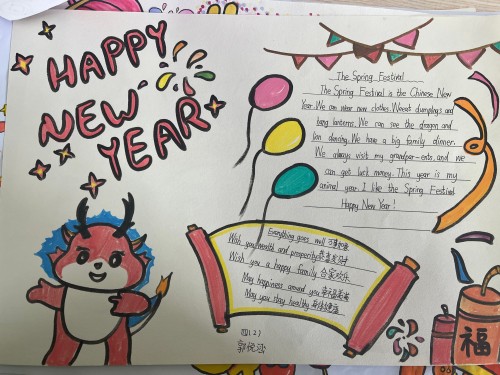 HAPPY
NEW
YEAR
The Spring Festival
The Spring Festival is the Chinese New
Year. We can wear new clothes. We eat dumplings and
hang lanterns. We can see the dragon and
lion dancing. We have a big family dinner.
We always visit my grandpar-ents, and we
can get luck money. This year is my
animal year. I like the Spring Festival
Happy New Year!
Everything goes well
Wish you wealth and prosperity 恭喜发财
Wish you a happy family 合家欢乐
May happiness around you 幸福美满
May you stay healthy 身体健康
四(2)
福